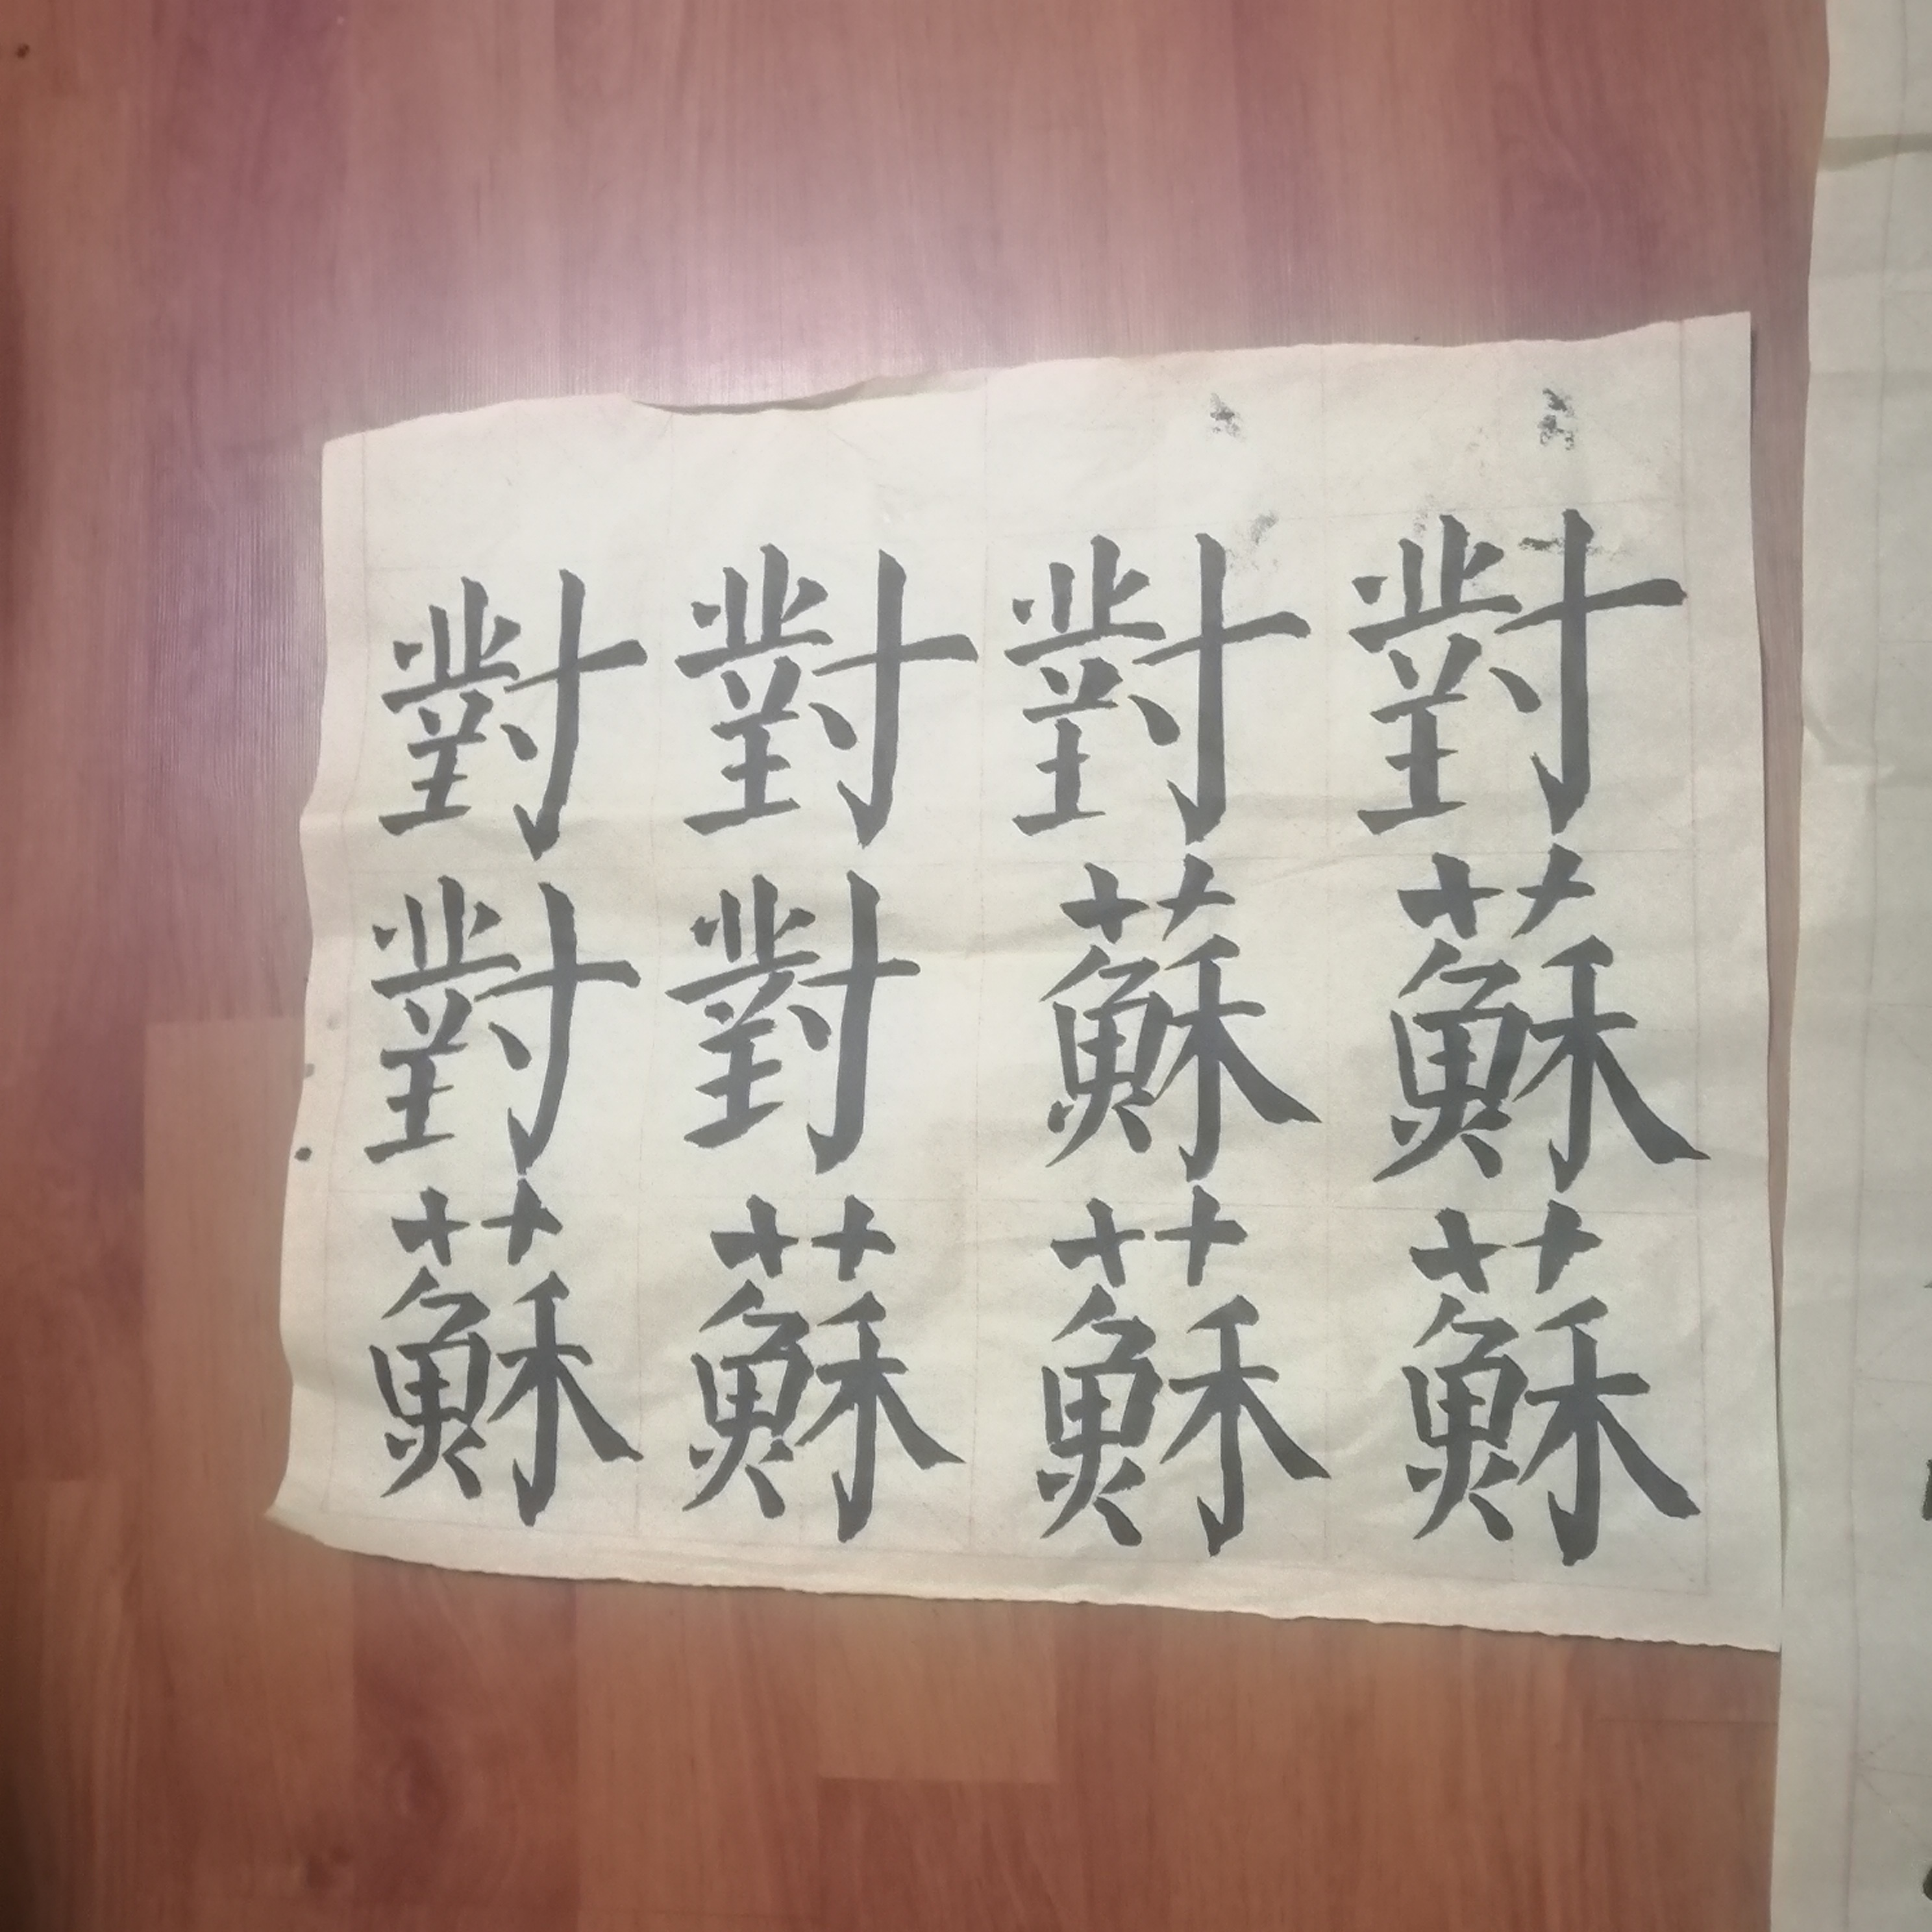 對對對對
對對蘇蘇
蘇蘇蘇蘇